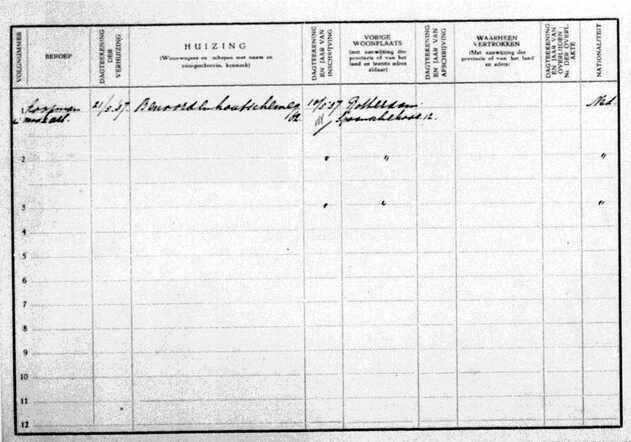 VOLGNUMMER
BEROEP
DAGTEEKENING
DER
VERHUIZING
HUIZING
(Woonwagens en schepen met naam en
eventueel kenmerk)
DAGTEEKENING
EN JAAR VAN
INSCHRIJVING
VORIGE
WOONPLAATS
(met aanwijzing der
provincie of van het
land en laatste adres
aldaar)
DAGTEEKENING
EN JAAR VAN
AFSCHRIJVING
WAARHEEN
VERTROKKEN
(Met aanwijzing der
provincie of van het land
en adres)
DAGTEEKENING
EN JAAR VAN
OVERLIJDEN
No. DER OVERL.
AKTE
NATIONALITEIT
Koopman 21/5.37 Benoordenhoutscheweg 10/5.37 Rotterdam Ned.
82 12.
2 " " "
3 " " "
4
5
6
7
8
9
10
11
12